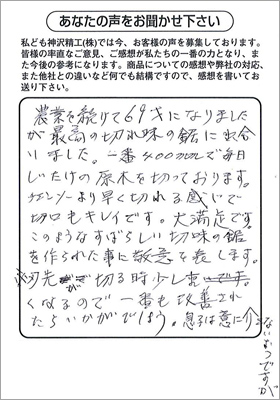 あなたの声をお聞かせ下さい
私ども神沢精工(株)では今、お客様の声を募集しております。
皆様の率直なご意見、ご感想が私たちの一番の力となり、ま
た今後の参考になります。商品についての感想や弊社の対応、
また他社との違いなど何でも結構ですので、感想を書いてお
送り下さい。
農業を続けて69才になりました
が最高の切れ味の鋸に出合
いました。一番400mmで毎日
しいたけの原木を切っております。
チエンソーより早く切れる感じで
切口もキレイです。大満足です。
このようなすばらしい切味の鋸
を作られた事に敬意を表します。
刃先が切る時少し
くなるので一番も改善され
たらいかがでしょう。息子は意に介
ないようですが